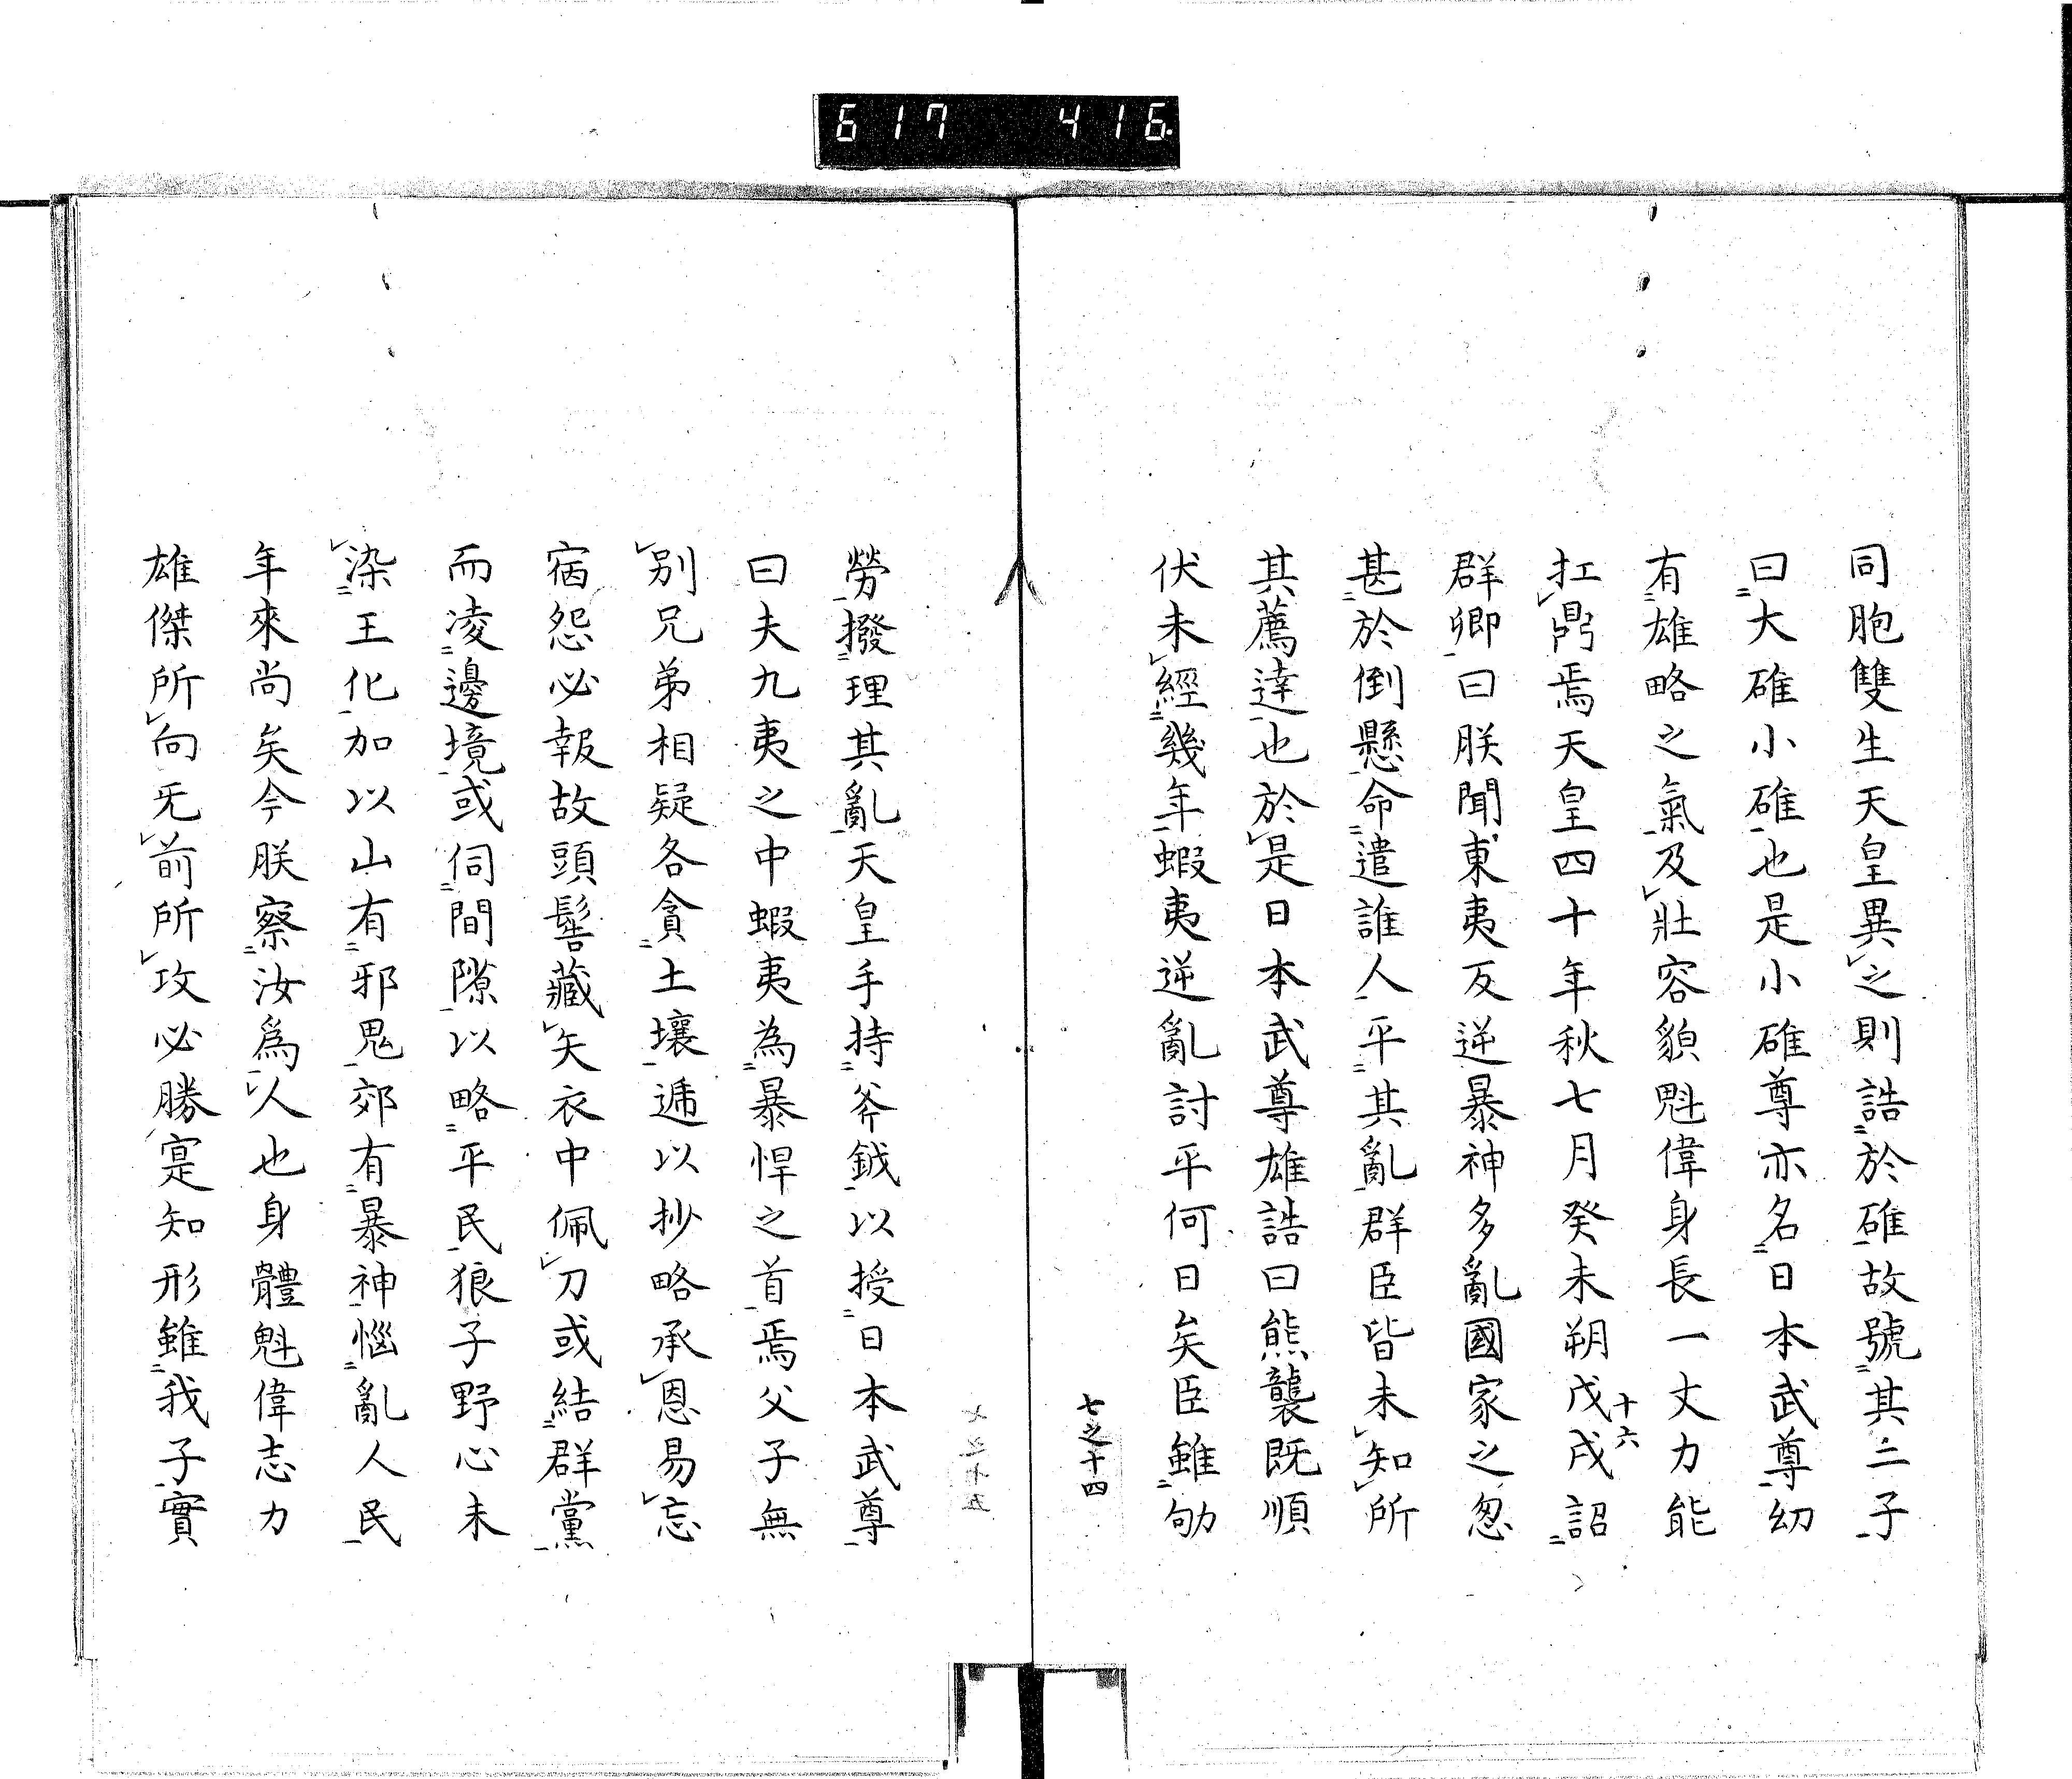 617 416
同胞雙生天皇異之則誥於碓故號其二子
曰大碓小碓也是小碓尊亦名日本武尊幼
有雄略之氣及壯容貌魁偉身長一丈力能
扛鼎焉天皇四十年秋七月癸未朔戊戌詔
十六
群卿曰朕聞東夷反逆暴神多亂國家之忽
甚於倒懸命遣誰人平其亂群臣皆未知所
其薦達也於是日本武尊雄誥曰熊襲既順
伏未經幾年蝦夷逆亂討平何日矣臣雖劬
七之十四
勞撥理其亂天皇手持斧鉞以授日本武尊
曰夫九夷之中蝦夷為暴悍之首焉父子無
別兄弟相疑各貪土壤遞以抄略承恩易忘
宿怨必報故頭髻藏矢衣中佩刀或結群黨
而凌邊境或伺間隙以略平民狼子野心未
染王化加以山有邪鬼郊有暴神惱亂人民
年來尚矣今朕察汝爲人也身體魁偉志力
雄傑所向无前所攻必勝寔知形雖我子實